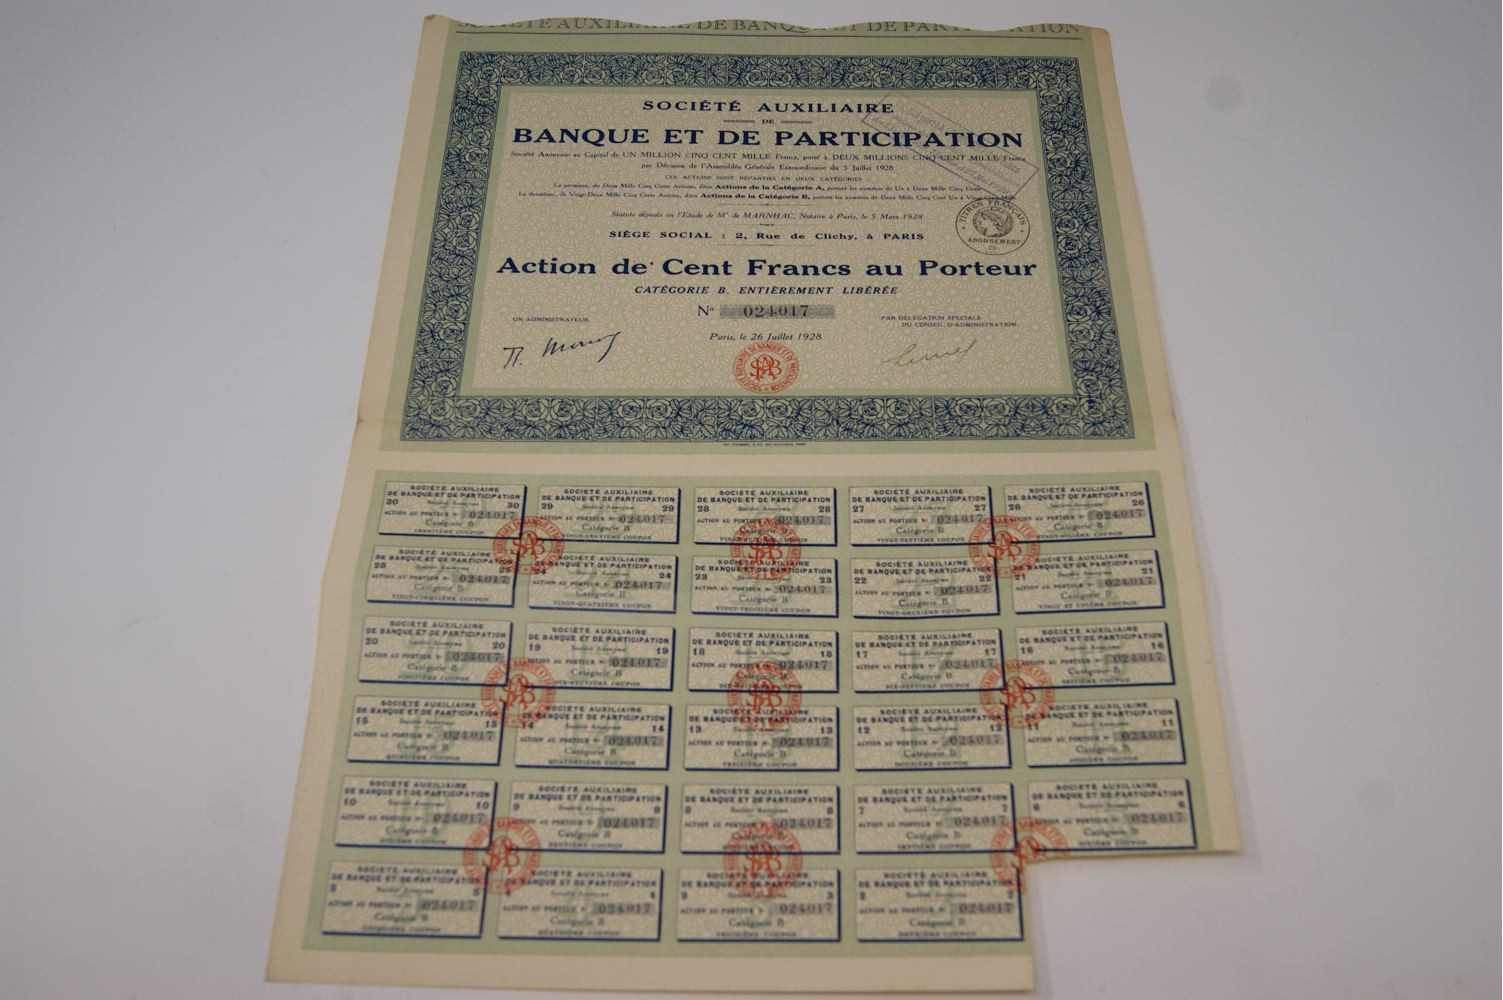 SOCIÉTÉ AUXILIAIRE DE BANQUE ET DE PARTICIPATION
SOCIÉTÉ AUXILIAIRE
DE
BANQUE ET DE PARTICIPATION
Société Anonyme au Capital de UN MILLION CINQ CENT MILLE Francs, porté à DEUX MILLIONS CINQ CENT MILLE Francs
par Décision de l'Assemblée Générale Extraordinaire du 5 Juillet 1928
CES ACTIONS SONT RÉPARTIES EN DEUX CATÉGORIES :
La première, de Deux Mille Cinq Cents Actions, dites Actions de la Catégorie A, portant les numéros de Un à Deux Mille Cinq Cents
La deuxième, de Vingt-Deux Mille Cinq Cents Actions, dites Actions de la Catégorie B, portant les numéros de Deux Mille Cinq Cent Un à Vingt-Cinq Mille
Statuts déposés en l'Étude de Me de MARNHAC, Notaire à Paris, le 5 Mars 1928
SIÈGE SOCIAL : 2, Rue de Clichy, à PARIS
TITRES FRANÇAIS
ABONNEMENT
Action de Cent Francs au Porteur
CATÉGORIE B. ENTIÈREMENT LIBÉRÉE
No 024017
UN ADMINISTRATEUR.
PAR DÉLÉGATION SPÉCIALE
DU CONSEIL D'ADMINISTRATION.
Paris, le 26 Juillet 1928
SOCIÉTÉ AUXILIAIRE DE BANQUE ET DE PARTICIPATION
SOCIÉTÉ AUXILIAIRE
DE BANQUE ET DE PARTICIPATION
30 Société Anonyme 30
ACTION AU PORTEUR No 024017
Catégorie B
TRENTIÈME COUPON
SOCIÉTÉ AUXILIAIRE
DE BANQUE ET DE PARTICIPATION
29 Société Anonyme 29
ACTION AU PORTEUR No 024017
Catégorie B
VINGT-NEUVIÈME COUPON
SOCIÉTÉ AUXILIAIRE
DE BANQUE ET DE PARTICIPATION
28 Société Anonyme 28
ACTION AU PORTEUR No 024017
Catégorie B
VINGT-HUITIÈME COUPON
SOCIÉTÉ AUXILIAIRE
DE BANQUE ET DE PARTICIPATION
27 Société Anonyme 27
ACTION AU PORTEUR No 024017
Catégorie B
VINGT-SEPTIÈME COUPON
SOCIÉTÉ AUXILIAIRE
DE BANQUE ET DE PARTICIPATION
26 Société Anonyme 26
ACTION AU PORTEUR No 024017
Catégorie B
VINGT-SIXIÈME COUPON
SOCIÉTÉ AUXILIAIRE
DE BANQUE ET DE PARTICIPATION
25 Société Anonyme 25
ACTION AU PORTEUR No 024017
Catégorie B
VINGT-CINQUIÈME COUPON
SOCIÉTÉ AUXILIAIRE
DE BANQUE ET DE PARTICIPATION
24 Société Anonyme 24
ACTION AU PORTEUR No 024017
Catégorie B
VINGT-QUATRIÈME COUPON
SOCIÉTÉ AUXILIAIRE
DE BANQUE ET DE PARTICIPATION
23 Société Anonyme 23
ACTION AU PORTEUR No 024017
Catégorie B
VINGT-TROISIÈME COUPON
SOCIÉTÉ AUXILIAIRE
DE BANQUE ET DE PARTICIPATION
22 Société Anonyme 22
ACTION AU PORTEUR No 024017
Catégorie B
VINGT-DEUXIÈME COUPON
SOCIÉTÉ AUXILIAIRE
DE BANQUE ET DE PARTICIPATION
21 Société Anonyme 21
ACTION AU PORTEUR No 024017
Catégorie B
VINGT ET UNIÈME COUPON
SOCIÉTÉ AUXILIAIRE
DE BANQUE ET DE PARTICIPATION
20 Société Anonyme 20
ACTION AU PORTEUR No 024017
Catégorie B
VINGTIÈME COUPON
SOCIÉTÉ AUXILIAIRE
DE BANQUE ET DE PARTICIPATION
19 Société Anonyme 19
ACTION AU PORTEUR No 024017
Catégorie B
DIX-NEUVIÈME COUPON
SOCIÉTÉ AUXILIAIRE
DE BANQUE ET DE PARTICIPATION
18 Société Anonyme 18
ACTION AU PORTEUR No 024017
Catégorie B
DIX-HUITIÈME COUPON
SOCIÉTÉ AUXILIAIRE
DE BANQUE ET DE PARTICIPATION
17 Société Anonyme 17
ACTION AU PORTEUR No 024017
Catégorie B
DIX-SEPTIÈME COUPON
SOCIÉTÉ AUXILIAIRE
DE BANQUE ET DE PARTICIPATION
16 Société Anonyme 16
ACTION AU PORTEUR No 024017
Catégorie B
SEIZIÈME COUPON
SOCIÉTÉ AUXILIAIRE
DE BANQUE ET DE PARTICIPATION
15 Société Anonyme 15
ACTION AU PORTEUR No 024017
Catégorie B
QUINZIÈME COUPON
SOCIÉTÉ AUXILIAIRE
DE BANQUE ET DE PARTICIPATION
14 Société Anonyme 14
ACTION AU PORTEUR No 024017
Catégorie B
QUATORZIÈME COUPON
SOCIÉTÉ AUXILIAIRE
DE BANQUE ET DE PARTICIPATION
13 Société Anonyme 13
ACTION AU PORTEUR No 024017
Catégorie B
TREIZIÈME COUPON
SOCIÉTÉ AUXILIAIRE
DE BANQUE ET DE PARTICIPATION
12 Société Anonyme 12
ACTION AU PORTEUR No 024017
Catégorie B
DOUZIÈME COUPON
SOCIÉTÉ AUXILIAIRE
DE BANQUE ET DE PARTICIPATION
11 Société Anonyme 11
ACTION AU PORTEUR No 024017
Catégorie B
ONZIÈME COUPON
SOCIÉTÉ AUXILIAIRE
DE BANQUE ET DE PARTICIPATION
10 Société Anonyme 10
ACTION AU PORTEUR No 024017
Catégorie B
DIXIÈME COUPON
SOCIÉTÉ AUXILIAIRE
DE BANQUE ET DE PARTICIPATION
9 Société Anonyme 9
ACTION AU PORTEUR No 024017
Catégorie B
NEUVIÈME COUPON
SOCIÉTÉ AUXILIAIRE
DE BANQUE ET DE PARTICIPATION
8 Société Anonyme 8
ACTION AU PORTEUR No 024017
Catégorie B
HUITIÈME COUPON
SOCIÉTÉ AUXILIAIRE
DE BANQUE ET DE PARTICIPATION
7 Société Anonyme 7
ACTION AU PORTEUR No 024017
Catégorie B
SEPTIÈME COUPON
SOCIÉTÉ AUXILIAIRE
DE BANQUE ET DE PARTICIPATION
6 Société Anonyme 6
ACTION AU PORTEUR No 024017
Catégorie B
SIXIÈME COUPON
SOCIÉTÉ AUXILIAIRE
DE BANQUE ET DE PARTICIPATION
5 Société Anonyme 5
ACTION AU PORTEUR No 024017
Catégorie B
CINQUIÈME COUPON
SOCIÉTÉ AUXILIAIRE
DE BANQUE ET DE PARTICIPATION
4 Société Anonyme 4
ACTION AU PORTEUR No 024017
Catégorie B
QUATRIÈME COUPON
SOCIÉTÉ AUXILIAIRE
DE BANQUE ET DE PARTICIPATION
3 Société Anonyme 3
ACTION AU PORTEUR No 024017
Catégorie B
TROISIÈME COUPON
SOCIÉTÉ AUXILIAIRE
DE BANQUE ET DE PARTICIPATION
2 Société Anonyme 2
ACTION AU PORTEUR No 024017
Catégorie B
DEUXIÈME COUPON